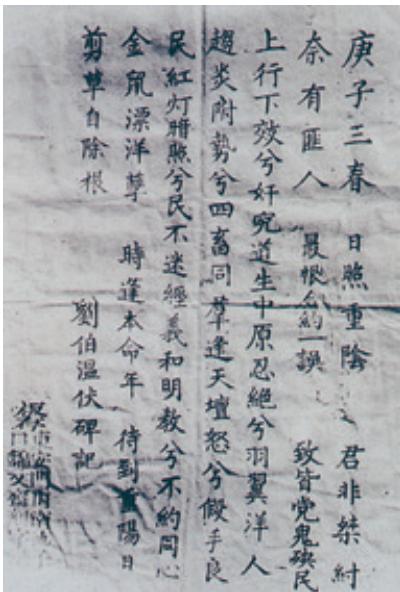 庚子三春 日照重陰 君非桀紂
奈有匪人 最恨和約一誤 致皆党鬼殃民
上行下效兮奸宄道生中原忍絕兮羽翼洋人
趨炎附勢兮四畜同羣逢天壇怒兮假手良
民紅灯暗照兮民不迷經義和明教兮不約同心
金鼠漂洋孽 時逢本命年 待到重陽日
剪草自除根 劉伯溫伏碑記